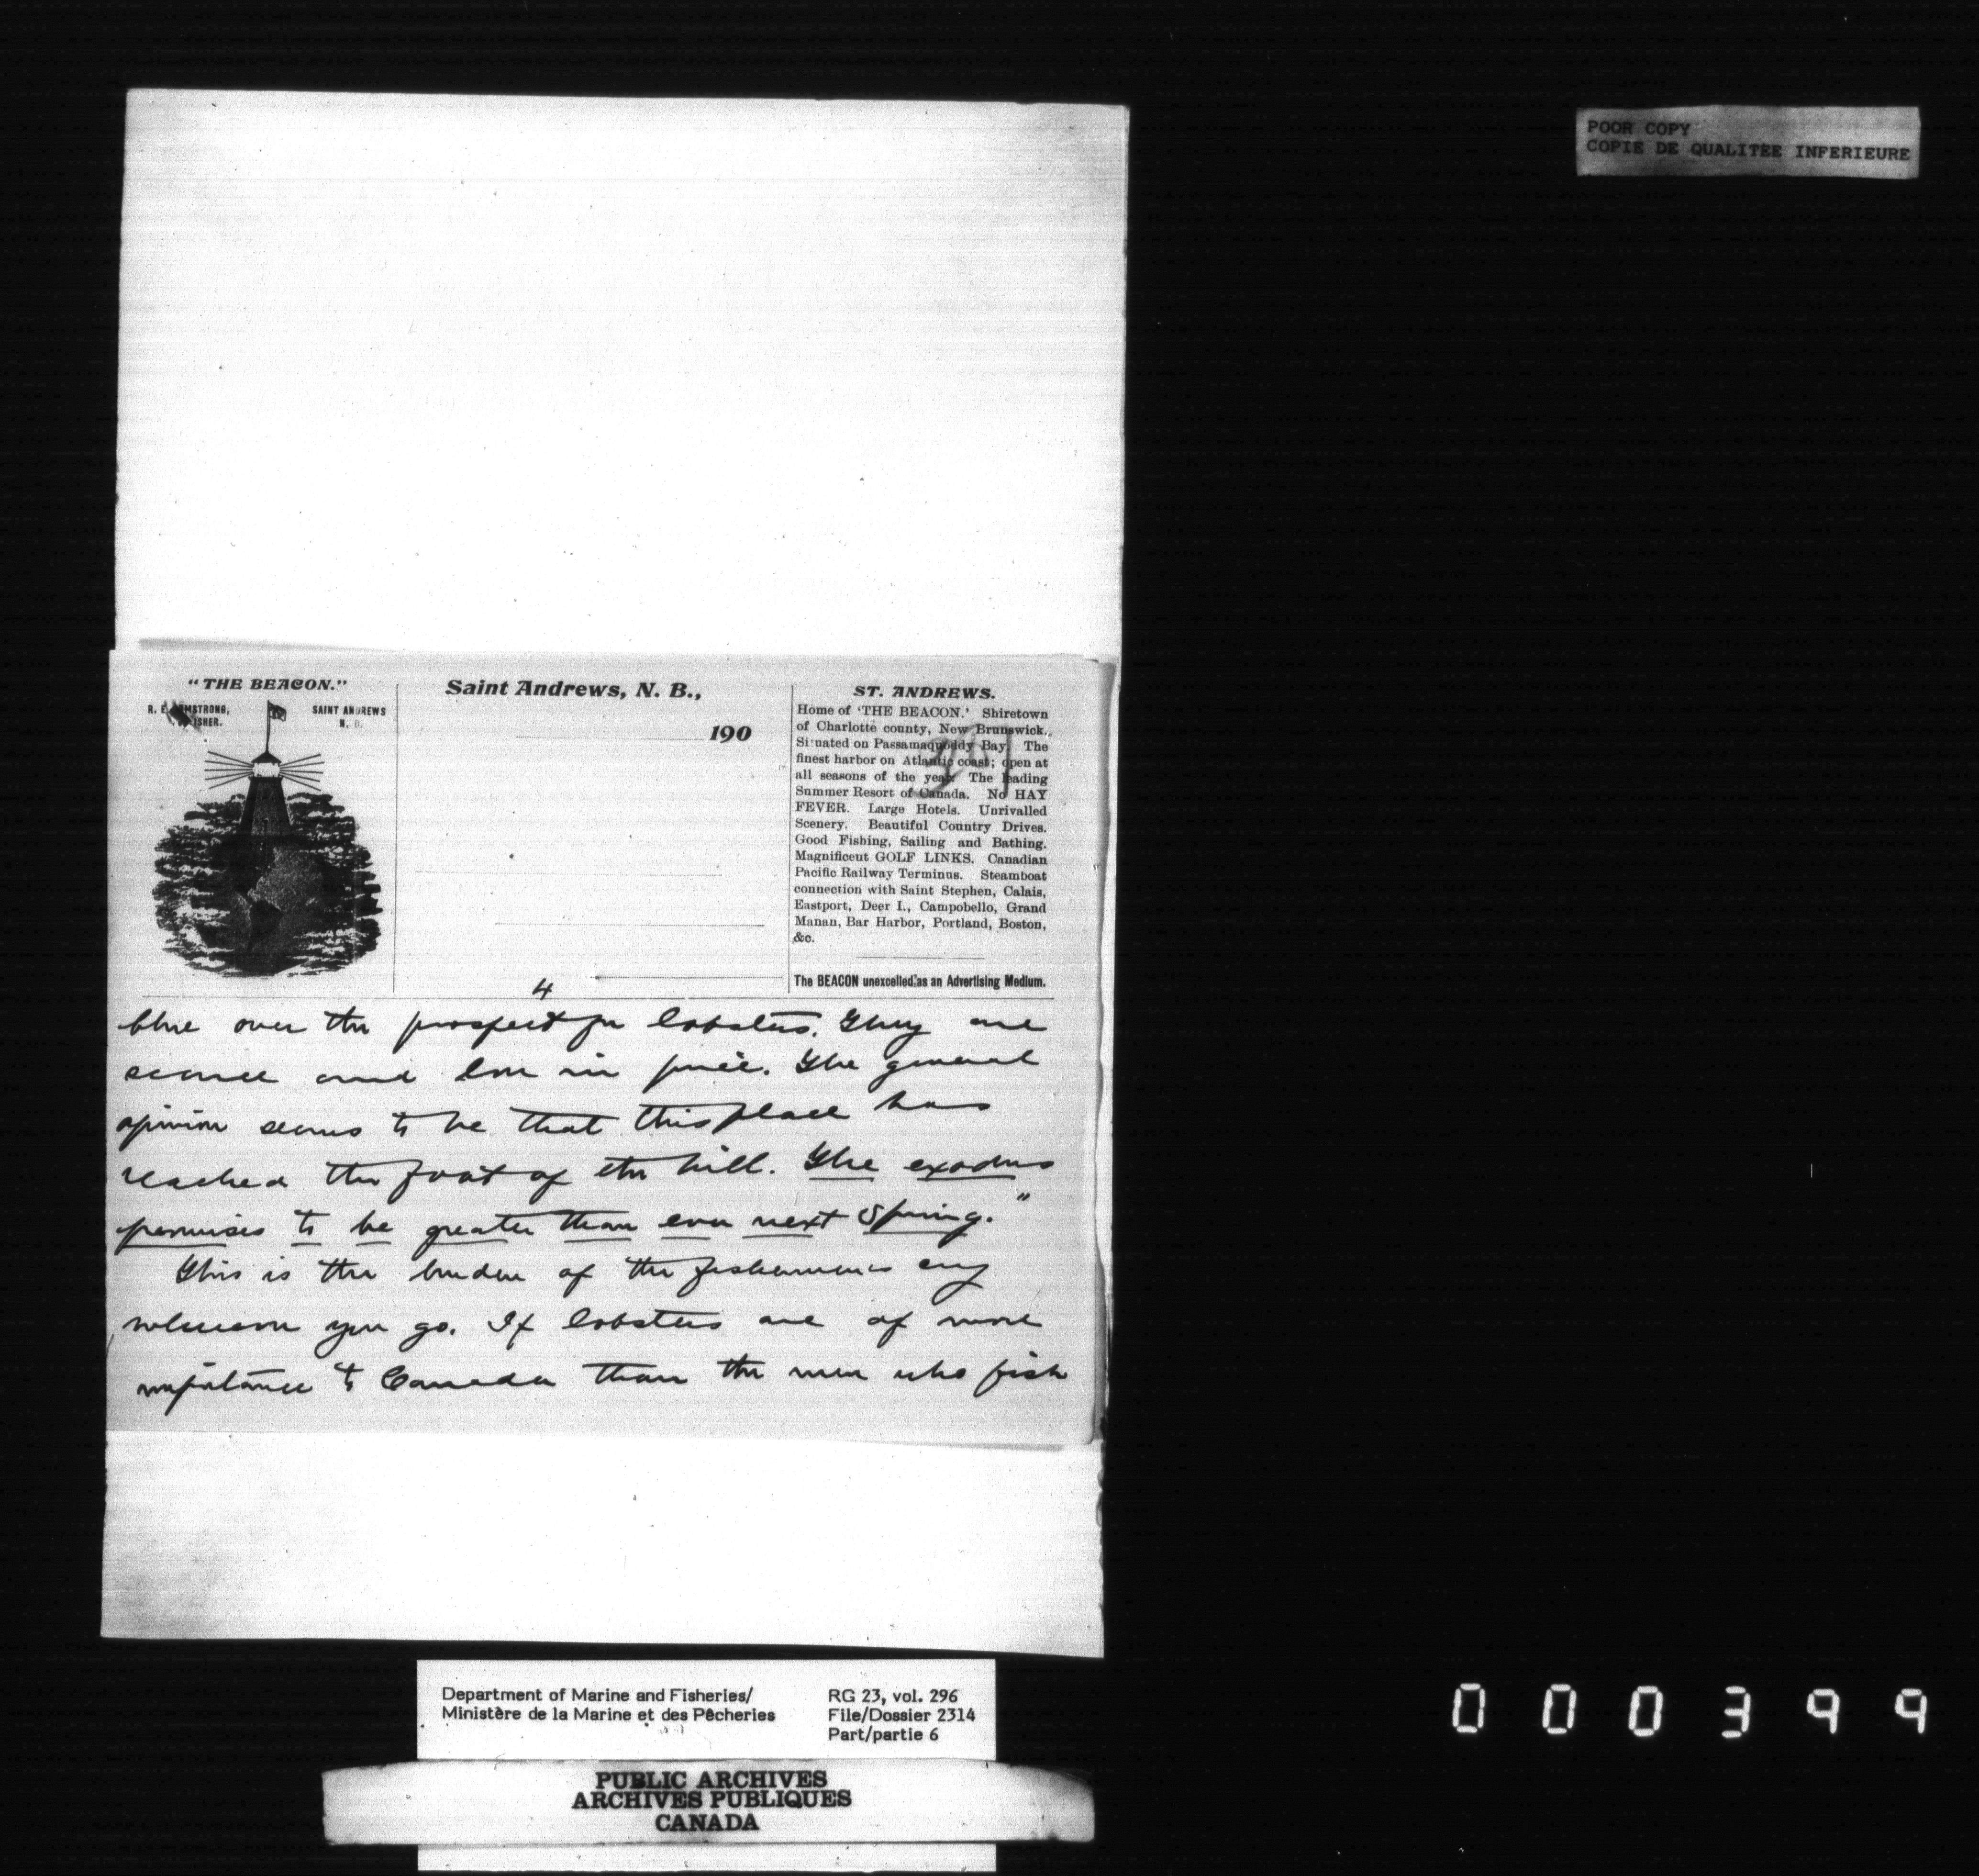 POOR COPY
COPIE DE QUALITEE INFERIEURE
"THE BEACON."
SAINT ANDREWS
N. B.
Saint Andrews, N. B.,
190
ST. ANDREWS.
Home of 'THE BEACON.' Shiretown
of Charlotte county, New Brunswick.
Situated on Passamaquoddy Bay. The
finest harbor on Atlantic coast; open at
all seasons of the year. The leading
Summer Resort of Canada. No HAY
FEVER. Large Hotels. Unrivalled
Scenery. Beautiful Country Drives.
Good Fishing, Sailing and Bathing.
Magnificent GOLF LINKS. Canadian
Pacific Railway Terminus. Steamboat
connection with Saint Stephen, Calais,
Eastport, Deer I., Campobello, Grand
Manan, Bar Harbor, Portland, Boston,
&c.
The BEACON unexcelled as an Advertising Medium.
4
blue over the prospect for lobsters. They are
scarce and low in price. The general
opinion seems to be that this place has
reached the foot of the hill. The exodus
promises to be greater than ever next Spring."
This is the burden of the fishermen's cry
wherever you go. If lobsters are of more
importance to Canada than the men who fish
Department of Marine and Fisheries/
Ministère de la Marine et des Pêcheries
RG 23, vol. 296
File/Dossier 2314
Part/partie 6
PUBLIC ARCHIVES
ARCHIVES PUBLIQUES
CANADA
000399